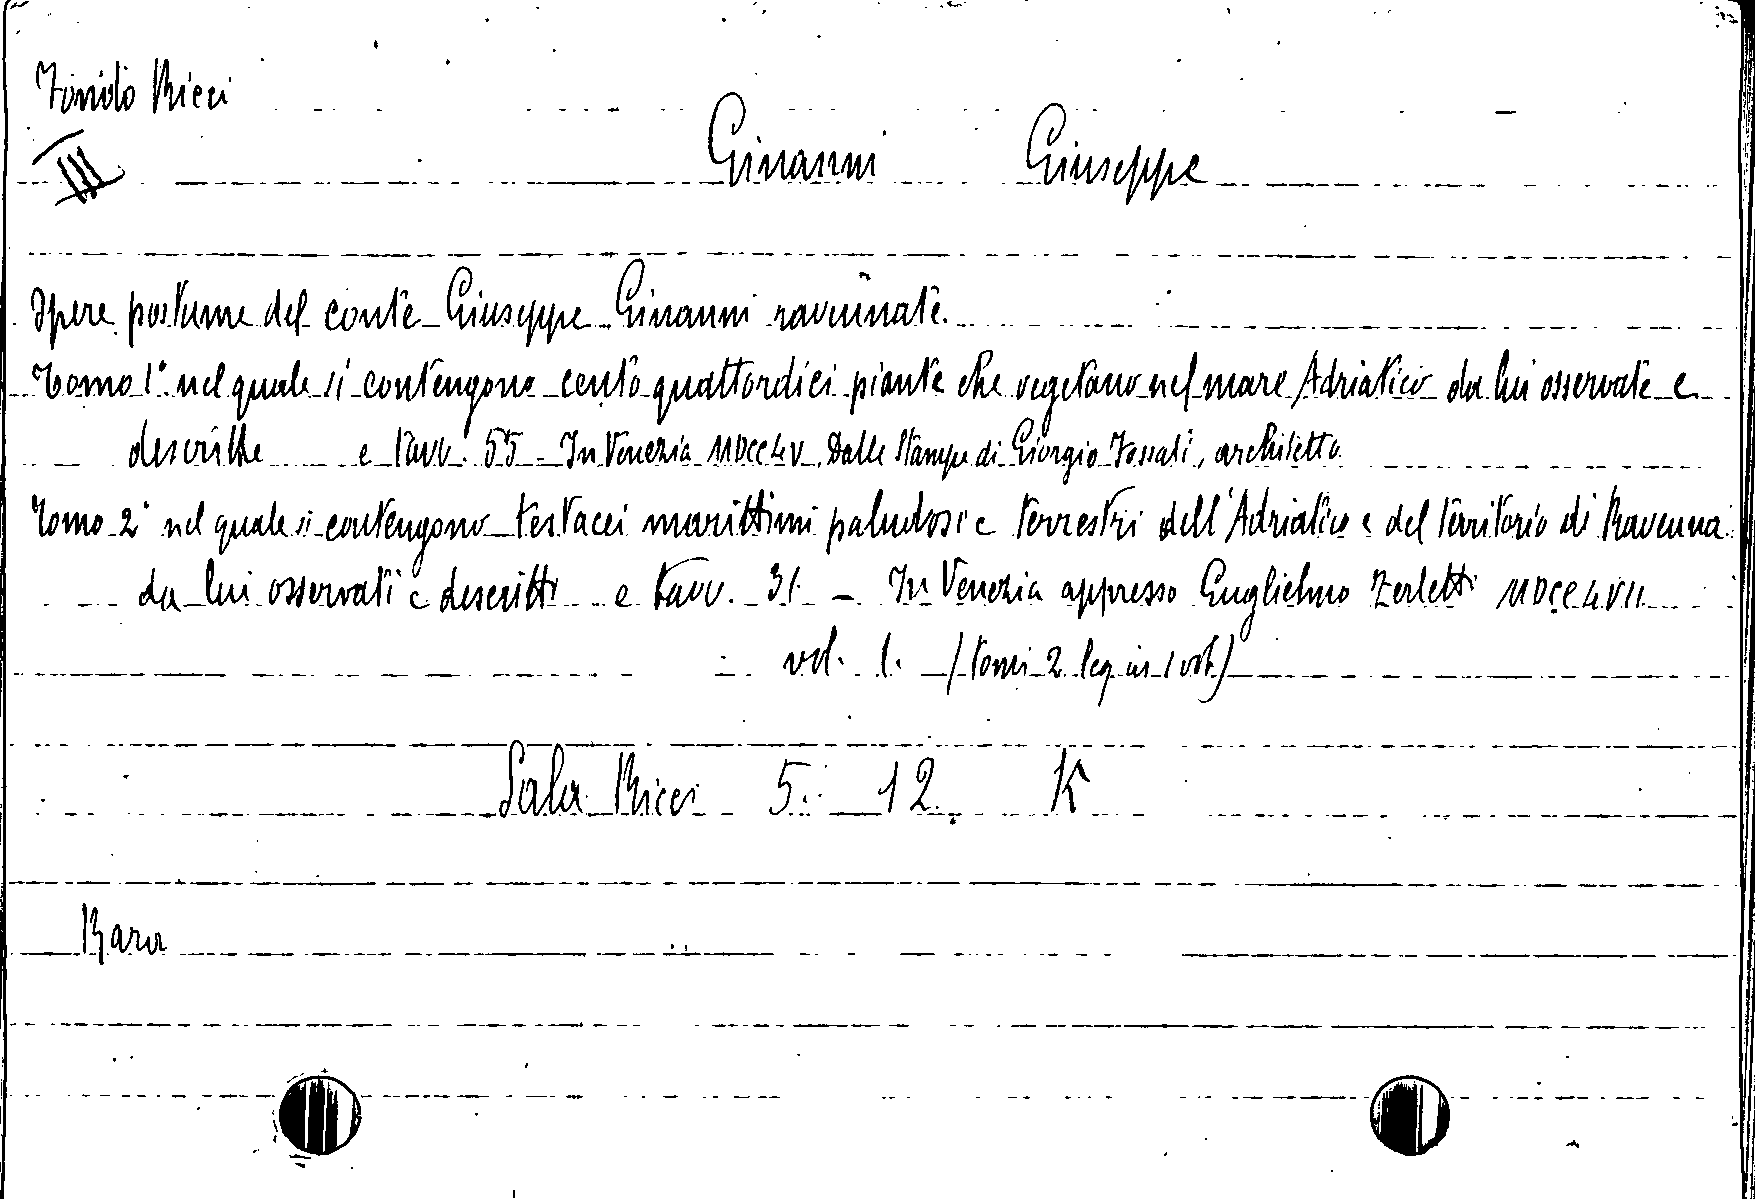 Fondo Ricci
III
Ginanni Giuseppe
Opere postume del conte Giuseppe Ginanni ravennate.
Tomo 1° nel quale si contengono cento quattordici piante che vegetano nel mare Adriatico da lui osservate e
descritte e tavv. 55 - In Venezia MDCCLV Dalle Stampe di Giorgio Fossati, architetto
Tomo 2° nel quale si contengono testacei marittimi paludosi e terrestri dell'Adriatico e del territorio di Ravenna
da lui osservati e descritti e tavv. 31 - In Venezia appresso Guglielmo Zerletti MDCCLVII
vol. 1. (tomi 2 leg in 1 vol)
Sala Ricci 5. 12. K
Raro